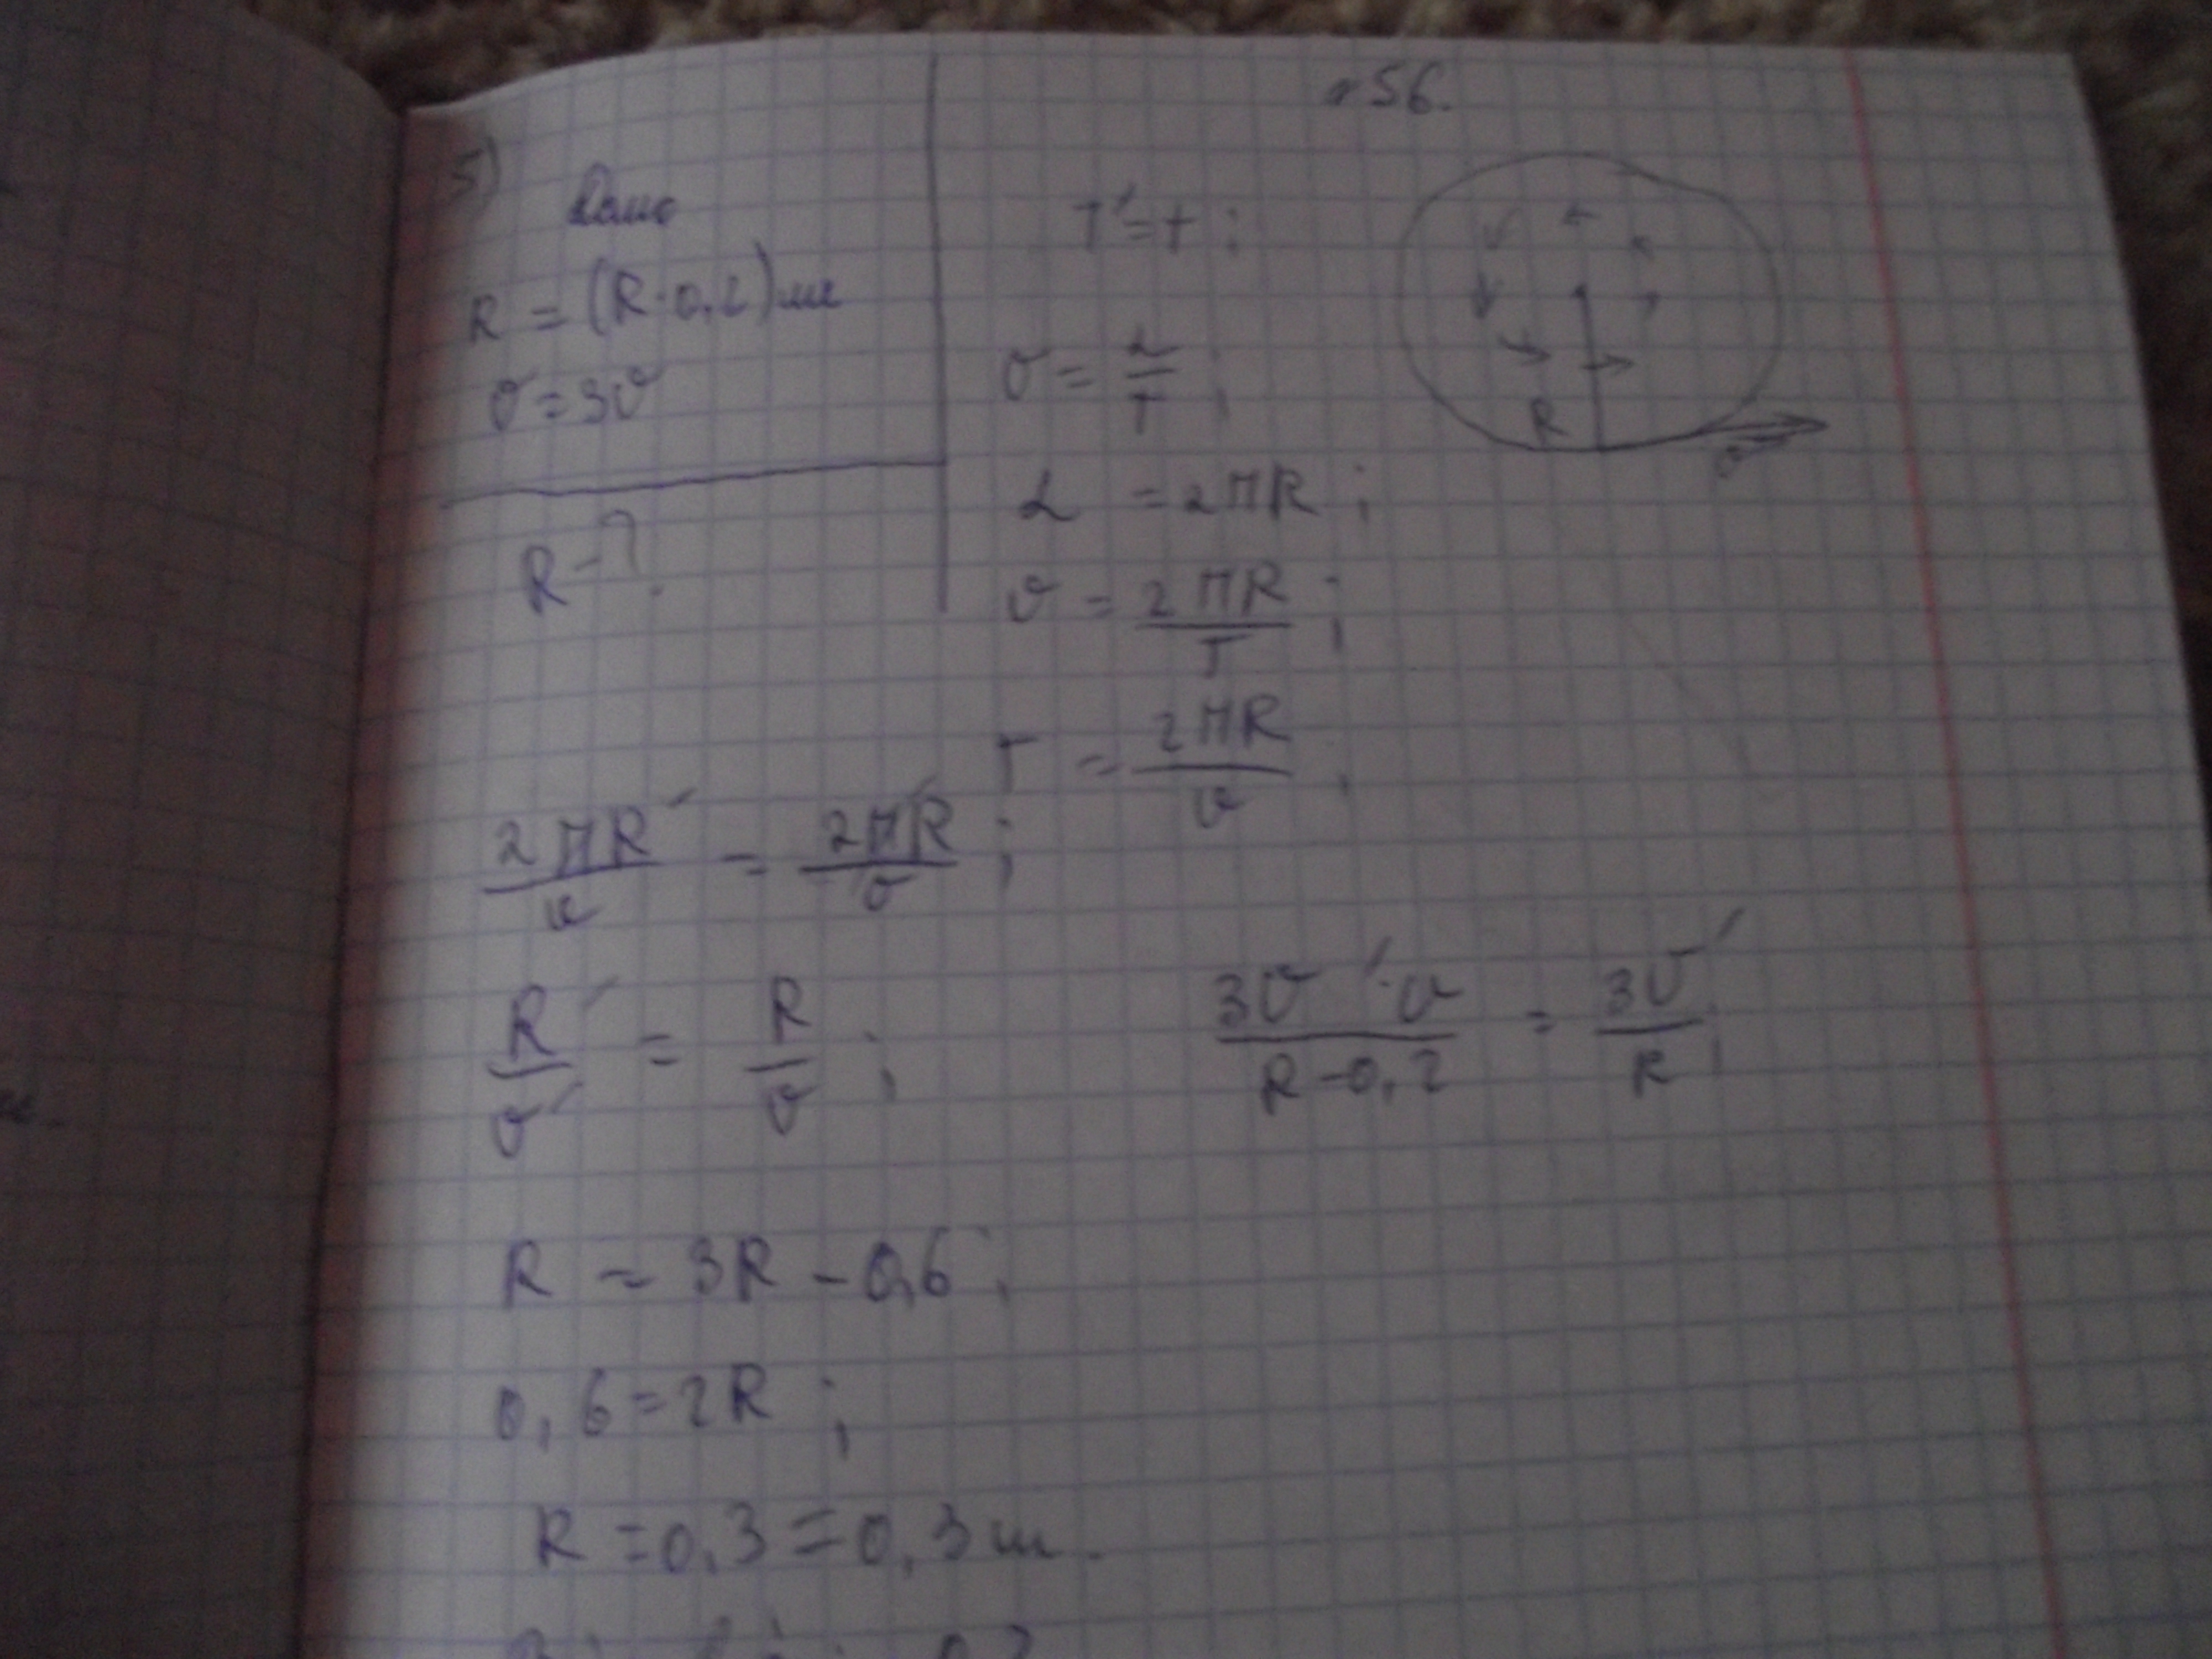 №56.
5)
Дано
R = (R-0,2)м
υ = 3υ
R - ?
T' = T ;
υ = L/T ;
L = 2πR ;
υ = 2πR/T ;
T = 2πR/υ ;
R
2πR'/υ = 2πR/υ ;
R'/υ' = R/υ ;
3υ'·υ/R-0,2 = 3υ'/R ;
R = 3R - 0,6 ;
0,6 = 2R ;
R = 0,3 = 0,3 м.